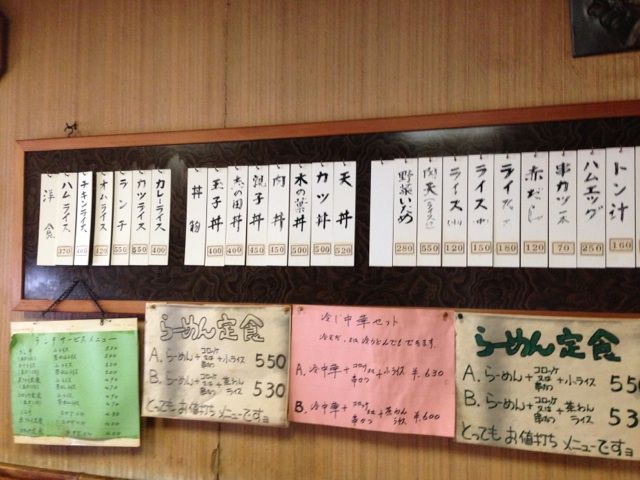 洋食
ハムライス 370
チキンライス 400
オムライス 420
ランチ 550
カツライス 550
カレーライス 400
丼物
玉子丼 400
志の田丼 400
親子丼 450
肉丼 450
木の葉丼 500
カツ丼 500
天丼 520
野菜いため 280
肉天 550
ライス(小) 120
ライス(中) 150
ライス(大) 180
赤だし 120
串カツ一本 70
ハムエッグ 250
トン汁 160
ランチサービスメニュー
らーめん定食
A. らーめん+コロッケ又は串かつ+小ライス 550
B. らーめん+コロッケ又は串かつ+茶わんライス 530
とってもお値打ちメニューですョ
冷し中華セット
冷そば、又は冷うどんでもできます。
A. 冷中華+コロッケ又は串かつ+小ライス ¥630
B. 冷中華+コロッケ又は串かつ+茶わんライス ¥600
らーめん定食
A. らーめん+コロッケ又は串かつ+小ライス 55
B. らーめん+コロッケ又は串かつ+茶わんライス 53
とってもお値打ちメニューですョ